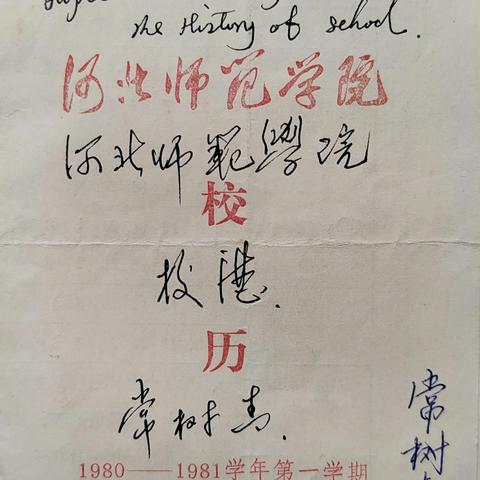 the History of school.
河北师范学院
河北师範學院
校
校
历
常树青.
1980——1981学年第一学期
常树